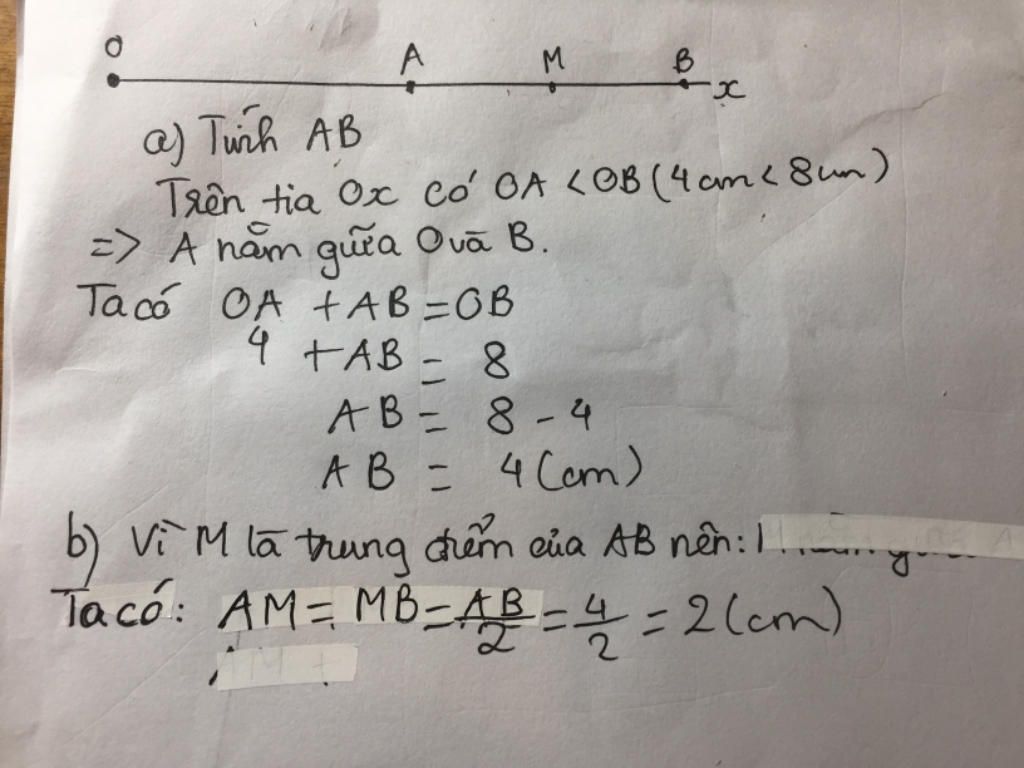 O A M B x
a) Tính AB
Trên tia Ox có OA < OB (4cm < 8cm)
=> A nằm giữa O và B.
Ta có OA + AB = OB
4 + AB = 8
AB = 8 - 4
AB = 4 (cm)
b) Vì M là trung điểm của AB nên:
Ta có: AM = MB = AB/2 = 4/2 = 2 (cm)